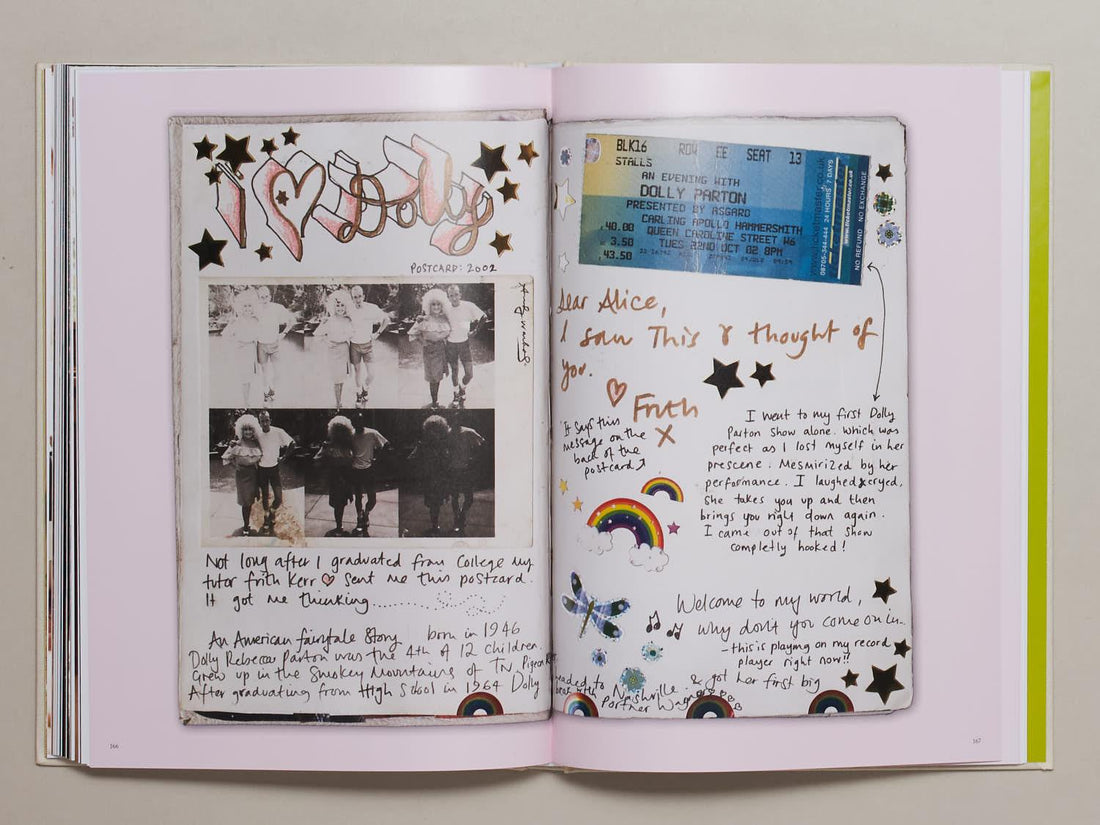 I ♡ Dolly
POSTCARD: 2002
Andy Warhol.
Not long after I graduated from College my
tutor frith Kerr ♡ sent me this postcard.
It got me thinking..............
An American fairytale Story born in 1946
Dolly Rebecca Parton was the 4th of 12 Children.
Grew up in the Smokey Mountains of TN, Pigeon
After graduating from High School in 1964 Dolly
166
BLK16 ROW EE SEAT 13
STALLS
AN EVENING WITH
DOLLY PARTON
PRESENTED BY ASGARD
CARLING APOLLO HAMMERSMITH
.40.00 QUEEN CAROLINE STREET W6
3.50 TUES 22ND OCT 02 8PM
.43.50
08705-344-444 24 HOURS 7 DAYS
www.ticketmaster.co.uk
NO REFUND NO EXCHANGE
Dear Alice,
I saw This & thought of
you.
♡ Frith
X
It says this
message on the
back of the
postcard
I went to my first Dolly
Parton Show alone. Which was
perfect as I lost myself in her
prescene. Mesmirized by her
performance. I laughed & cryed,
She takes you up and then
brings you right down again.
I came out of that show
completly hooked!
Welcome to my world,
why dont you come on in..
- this is playing on my record
player right now!!
headed to Nashville & got her first big
Portner Wagner
167